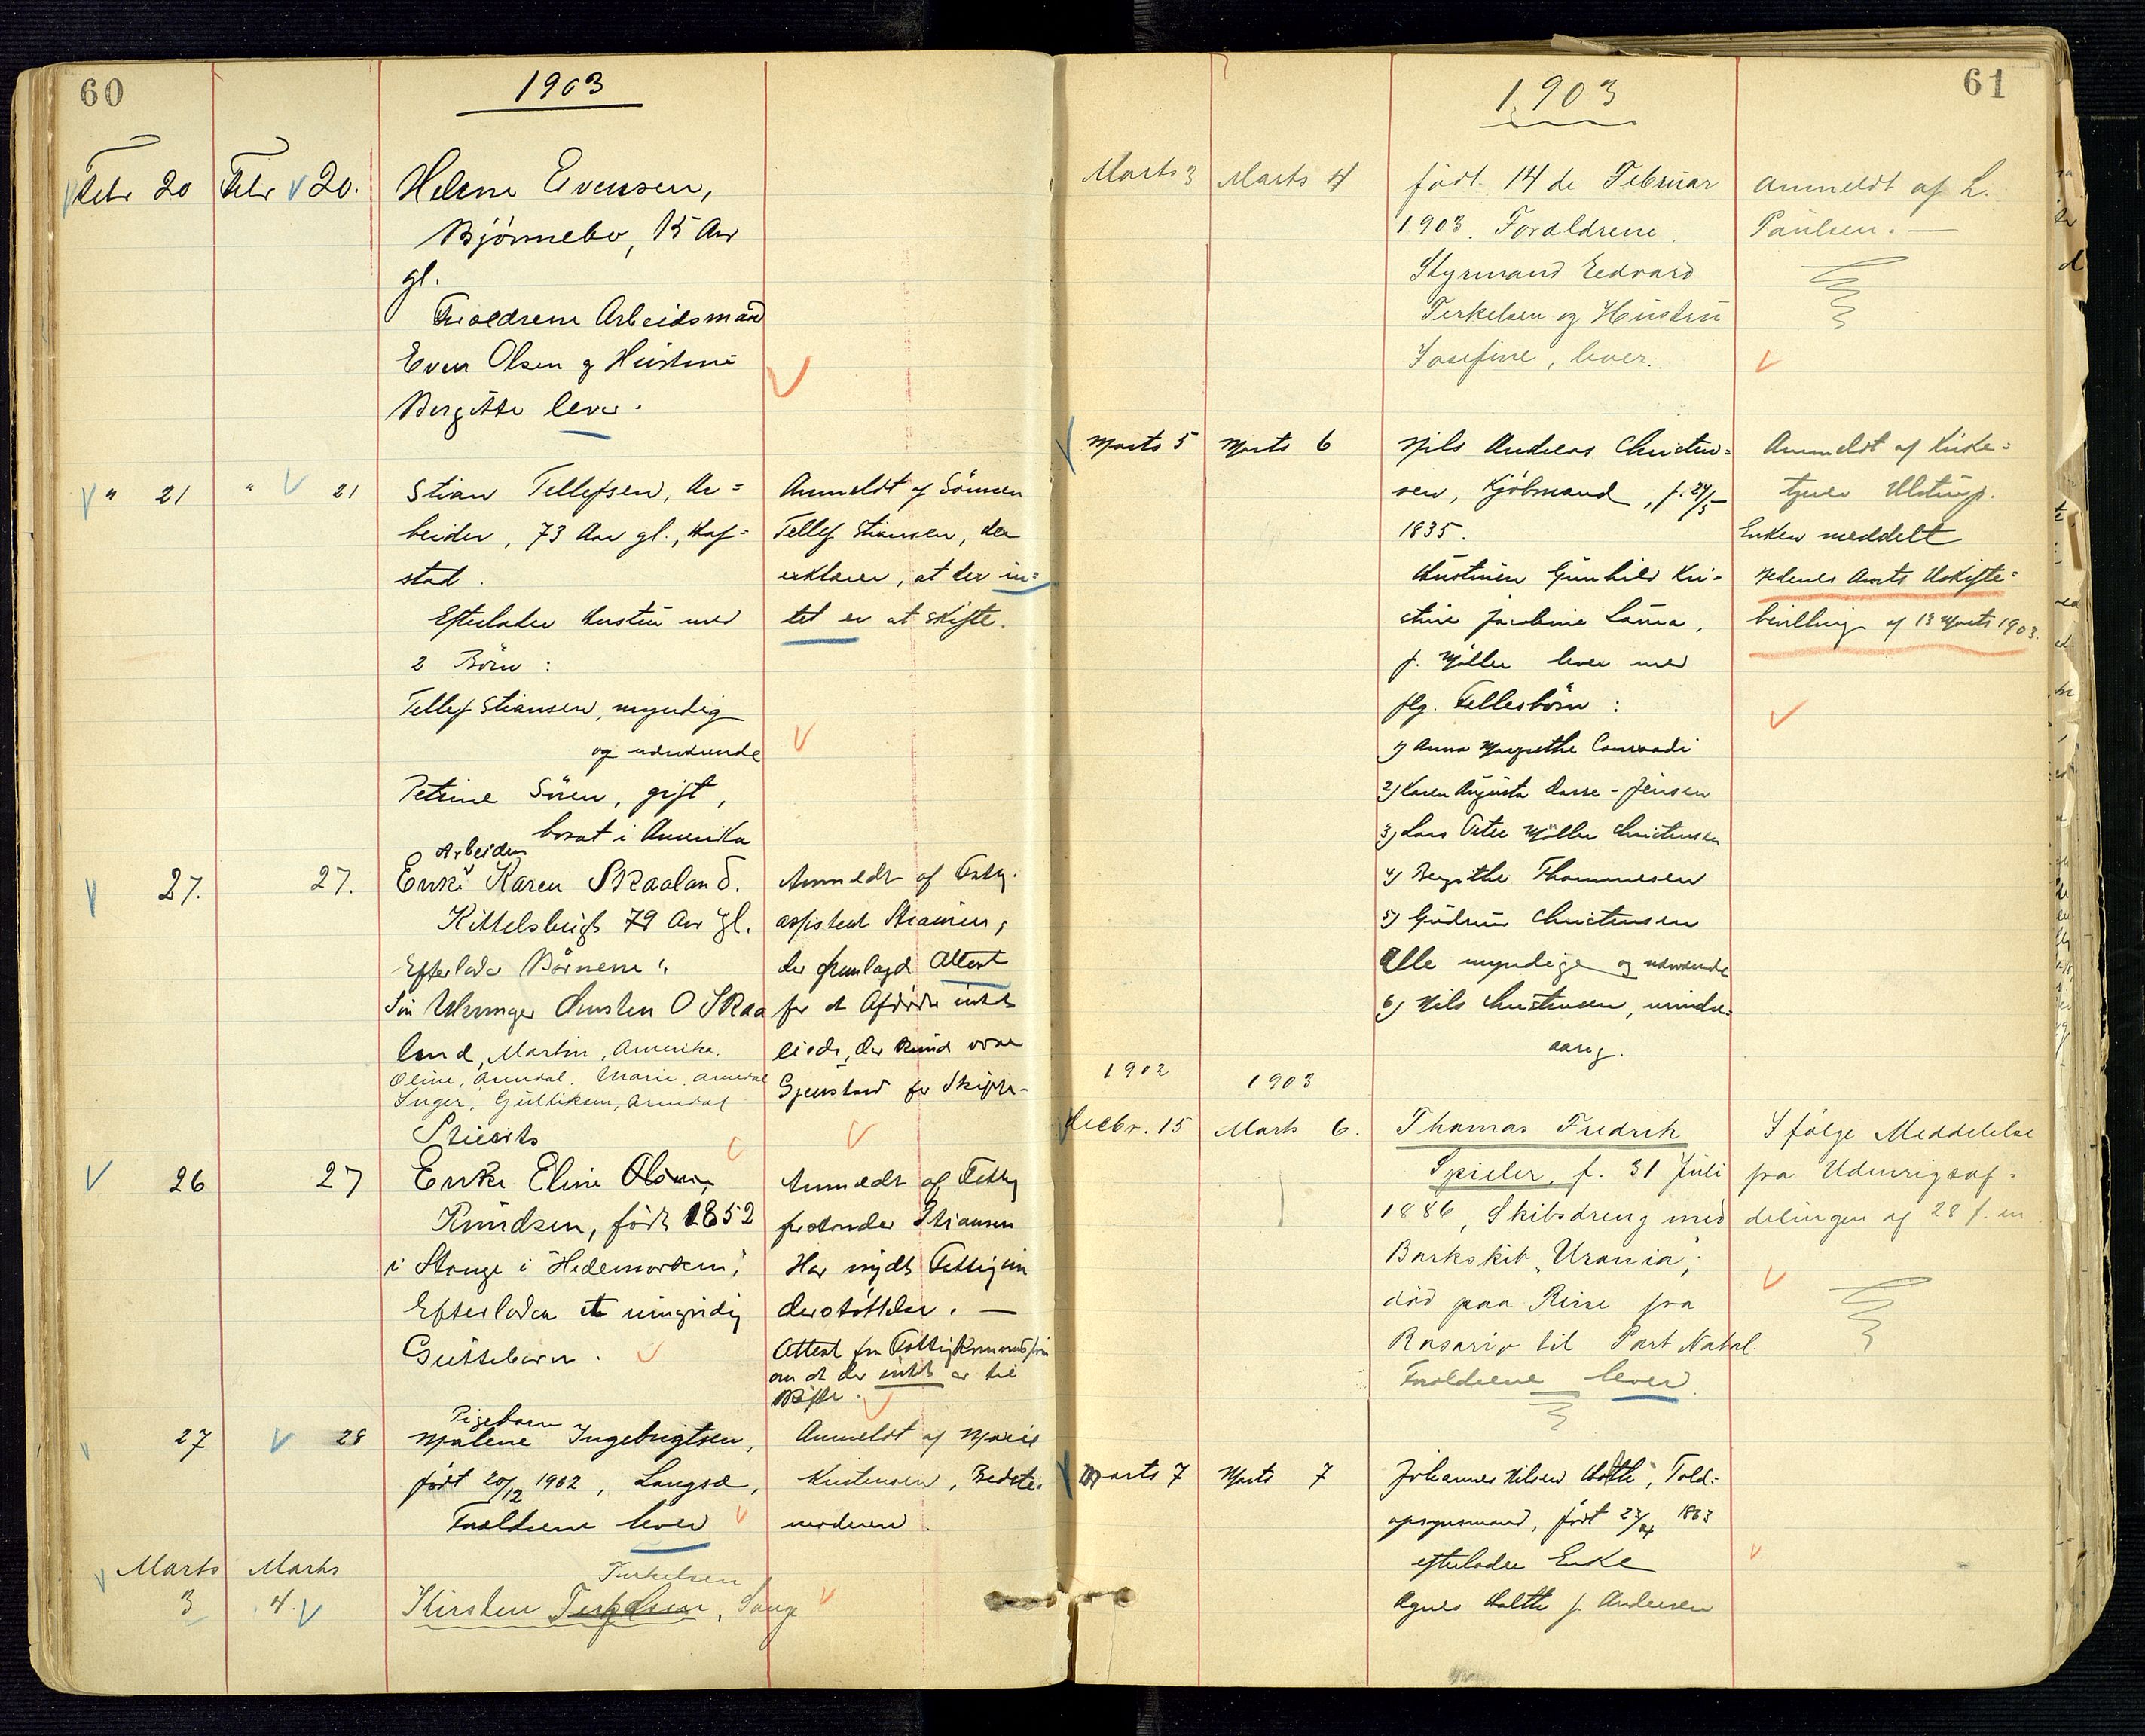 60
1903
Febr 20 Febr 20. Helene Evensen,
Bjønnebo, 15 Aar
gl.
Forældrene Arbeidsmand
Even Olsen og Hustru
Bergitte lever.
" 21 " 21 Stian Tellefsen, Ar=
beider, 73 Aar gl., Haf=
stad.
Efterlader Hustru med
2 Børn :
Tellef Stiansen, myndig
og nærværende
Petrine Sören, gift,
bosat i Amerika
Anmeldt af Sönnen
Tellef Stiansen, der
erklærer, at der in=
tet er at skifte.
27. 27. Arbeider
Enke Karen Skaaland.
Kittelsbugt 79 Aar gl.
Efterlader Børnene:
Søn Uhrmager Christen O Skaa
land, Martin, Amerika.
Oline, Arendal. Marie, Arendal
Inger, Gulliksen, Arendal
Anmeldt af Fattig.
assistent Stiansen,
der fremlagde Attest
for at Afdøde intet
eiede, der kunde være
Gjenstand for Skifte.
26 27 Stuerts
Enke Eline Olsen,
Knudsen, født 1852
i Stange i Hedemarken,
Efterlader et umyndig
Guttebarn.
Anmeldt af Fattig
forstander Stiansen
Har nydt Fattigun
derstøttelse. —
Attest fra Fattigkommissionen
om at der intet er til
Skifte.
27 28 Pigebarn
Malene Ingebrigtsen,
født 20/12 1902, Langsæ,
Forældrene lever
Anmeldt af Marie
Kristensen, Bedste-
moderen.
Marts Marts
3 4. Terkelsen
Kirsten, Songe
61
1903
Marts 3 Marts 4 født 14 de Februar
1903. Forældrene
Styrmand Edvard
Terkelsen og Hustru
Josefine, lever.
Anmeldt af L.
Paulsen. —
Marts 5 Marts 6 Nils Andreas Christen=
sen, Kjøbmand, f. 24/5
1835.
Hustruen Gunhild Kri=
stine Jacobine Laura,
f. Møller lever med
flg. Fællesbörn :
1) Anna Margrethe Conradi
2) Karen Augusta Aasse-Jensen
3) Lars Peter Møller Christensen
4) Bergithe Thommesen
5) Gudrun Christensen
Alle myndige og nærværende
6) Nils Christensen, mindre=
aarig.
Anmeldt af Kirke=
tjener Ulstrup.
Enken meddelt
Nedenes Amts Uskifte=
bevilling af 13 Marts 1903.
1902 1903
Decbr. 15 Marts 6. Thomas Fredrik
Spieler, f. 31 Juli
1886, Skibsdreng med
Barkskib „Urania”,
død paa Reise fra
Rosario til Port Natal.
Forældrene lever.
Ifølge Meddelelse
fra Udenrigsaf=
delingen af 28 f. m.
Marts 7 Marts 7 Johannes Nilsen Holth, Told=
opsynsmand, født 23/4 1863
efterlader Enke
Agnes Holth f. Andersen